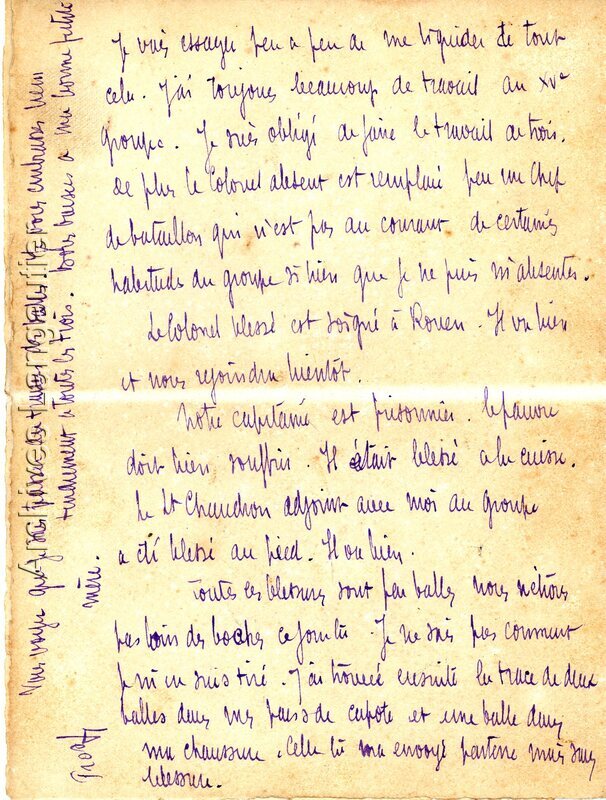 Je vais essayer peu a peu de me liquider de tout
cela. J'ai toujours beaucoup de travail au XVe
groupe. Je suis obligé de faire le travail de trois.
De plus le Colonel absent est remplacé par un Chef
de bataillon qui n'est pas au courant de certaines
habitudes du groupe si bien que je ne puis m'absenter.
Le Colonel blessé est soigné à Rouen. Il va bien
et nous rejoindra bientôt.
Notre capitaine est prisonnier le pauvre
doit bien souffrir. Il était blessé a la cuisse.
Le Lt Chaudron adjoint avec moi au groupe
a été blessé au pied. Il va bien.
Toutes ces blessures sont par balles nous n'étions
pas loin des boches ce jour là. Je ne sais pas comment
je m'en suis tiré. J'ai trouvé ensuite la trace de deux
balles dans mes pans de capote et une balle dans
ma chaussure. Celle là m'a envoyé par terre mais sans
blessure.
Vous voyez que je suis embrasse bien
tendrement a toutes les trois. Bons baisers a ma bonne petite
mère.